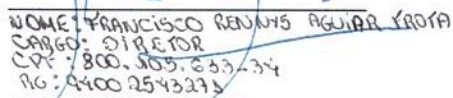 NOME: FRANCISCO RENNYS AGUIAR FROTA
CARGO: DIRETOR
CPF: 800.105.633-34
RG: 9400 2543273